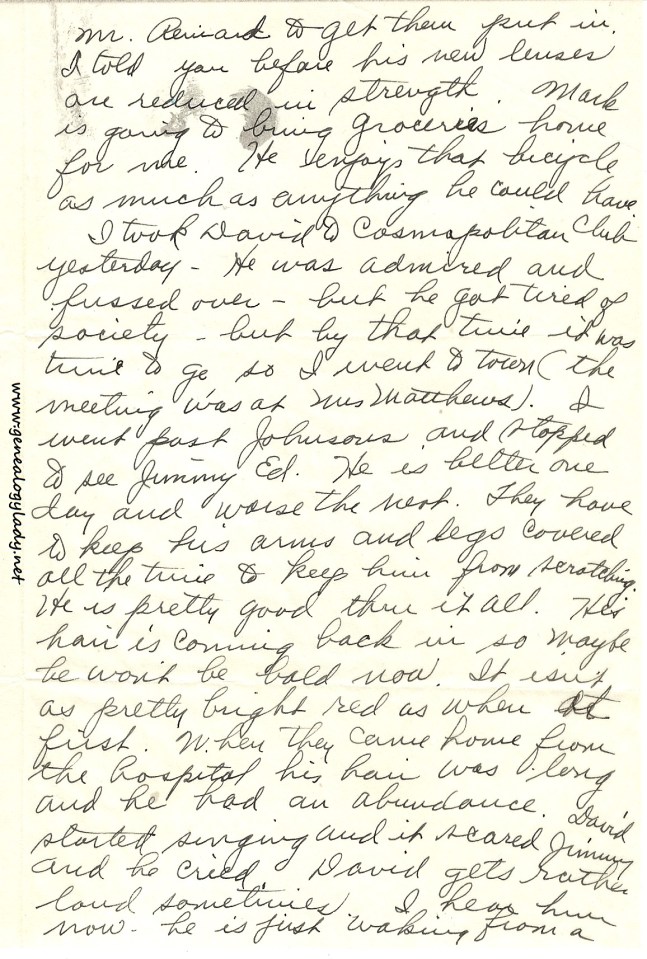 Mr. Reward to get them put in.
I told you before his new lenses
are reduced in strength. Mark
is going to bring groceries home
for me. He enjoys that bicycle
as much as anything he could have
I took David to Cosmopolitan Club
yesterday - He was admired and
fussed over - but he got tired of
society - but by that time it was
time to go so I went to town (the
meeting was at Mrs Matthews). I
went past Johnsons and stopped
to see Jimmy Ed. He is better one
day and worse the next. They have
to keep his arms and legs covered
all the time to keep him from scratching.
He is pretty good thru it all. His
hair is coming back in so maybe
he won't be bald now. It isn't
as pretty bright red as when at
first. When they came home from
the hospital his hair was long
and he had an abundance. David
started singing and it scared Jimmy
and he cried. David gets rather
loud sometimes. I hear him
now - he is just waking from a
www.genealogylady.net